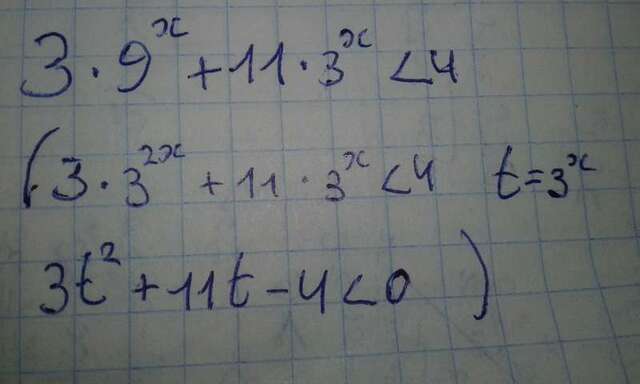 3 · 9^x + 11 · 3^x < 4
(3 · 3^{2x} + 11 · 3^x < 4 t = 3^x
3t^2 + 11t - 4 < 0 )